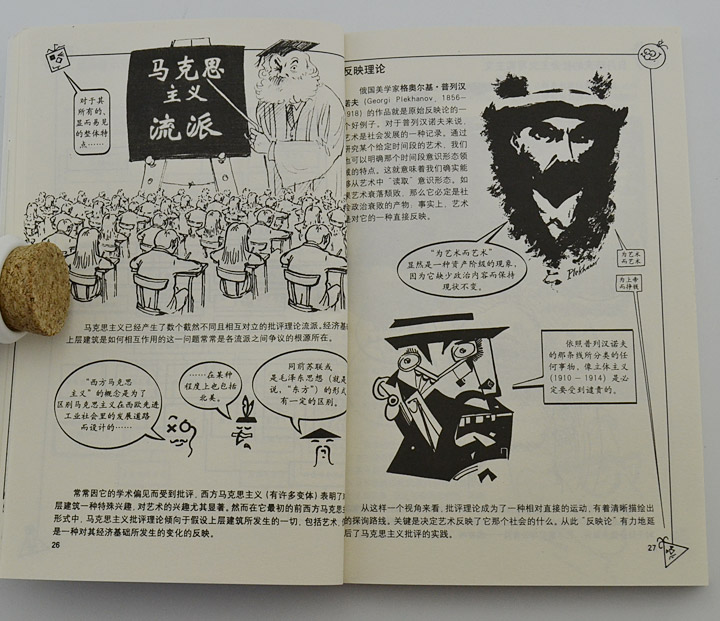 马克思
主义
流派
对于其
所有的、
显而易见
的整体特
点……
马克思主义已经产生了数个截然不同且相互对立的批评理论流派。经济基
上层建筑是如何相互作用的这一问题常常是各流派之间争议的根源所在。
“西方马克思
主义”的概念是为了
区别马克思主义在西欧先进
工业社会里的发展道路
而设计的……
……在某种
程度上也包括
北美。
同前苏联或
是毛泽东思想（就是
说，“东方”）的形式
有一定的区别。
常常因它的学术偏见而受到批评，西方马克思主义（有许多变体）表明了对
层建筑一种特殊兴趣，对艺术的兴趣尤其显著。然而在它最初的前西方马克思主
形式中，马克思主义批评理论倾向于假设上层建筑所发生的一切，包括艺术，
是一种对其经济基础所发生的变化的反映。
26
反映理论
俄国美学家格奥尔基·普列汉
诺夫（Georgi Plekhanov，1856–
1918）的作品就是原始反映论的一
个好例子。对于普列汉诺夫来说，
艺术是社会发展的一种记录。通过
研究某个给定时间段的艺术，我们
也可以明确那个时间段意识形态领
域的特点。这就意味着我们确实能
够从艺术中“读取”意识形态。如
果艺术衰落颓败，那么它必定是社
会政治衰败的产物，事实上，艺术
是对它的一种直接反映。
“为艺术而艺术”
显然是一种资产阶级的现象，
因为它缺少政治内容而保持
现状不变。
Plekhanov
为艺术
而艺术
为上帝
而挣钱
依照普列汉诺夫
的那条线所分类的任
何事物，像立体主义
（1910－1914）是必
定要受到谴责的。
从这样一个视角来看，批评理论成为了一种相对直接的运动，有着清晰描绘出
的探询路线。关键是决定艺术反映了它那个社会的什么。从此“反映论”有力地延
后了马克思主义批评的实践。
27